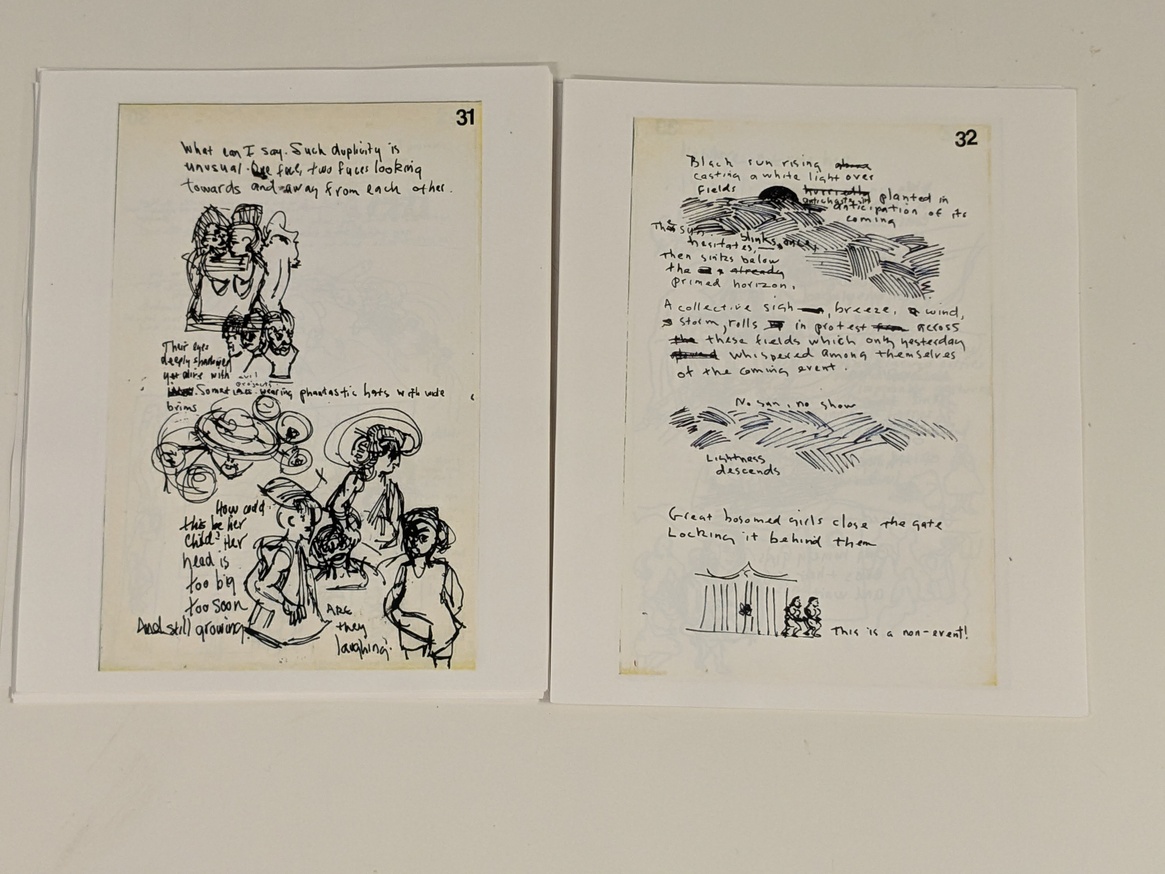 31
What can I say. Such duplicity is
unusual. One face, two faces looking
towards and away from each other.
Their eyes
deeply shadowed
yet alive with
evil
projects
Sometimes wearing phantastic hats with wide
brims
How could
this be her
child? Her
head is
too big
too soon
And still growing.
ARE
they
laughing?
32
Black sun rising
casting a white light over
fields planted in
anticipation of its
coming
The sun
hesitates, blinks once,
then sinks below
the already
primed horizon.
A collective sigh, breeze, wind,
storm, rolls in protest across
these fields which only yesterday
whispered among themselves
of the coming event.
No sun, no show
Lightness
descends
Great bosomed girls close the gate
Locking it behind them
This is a non-event!